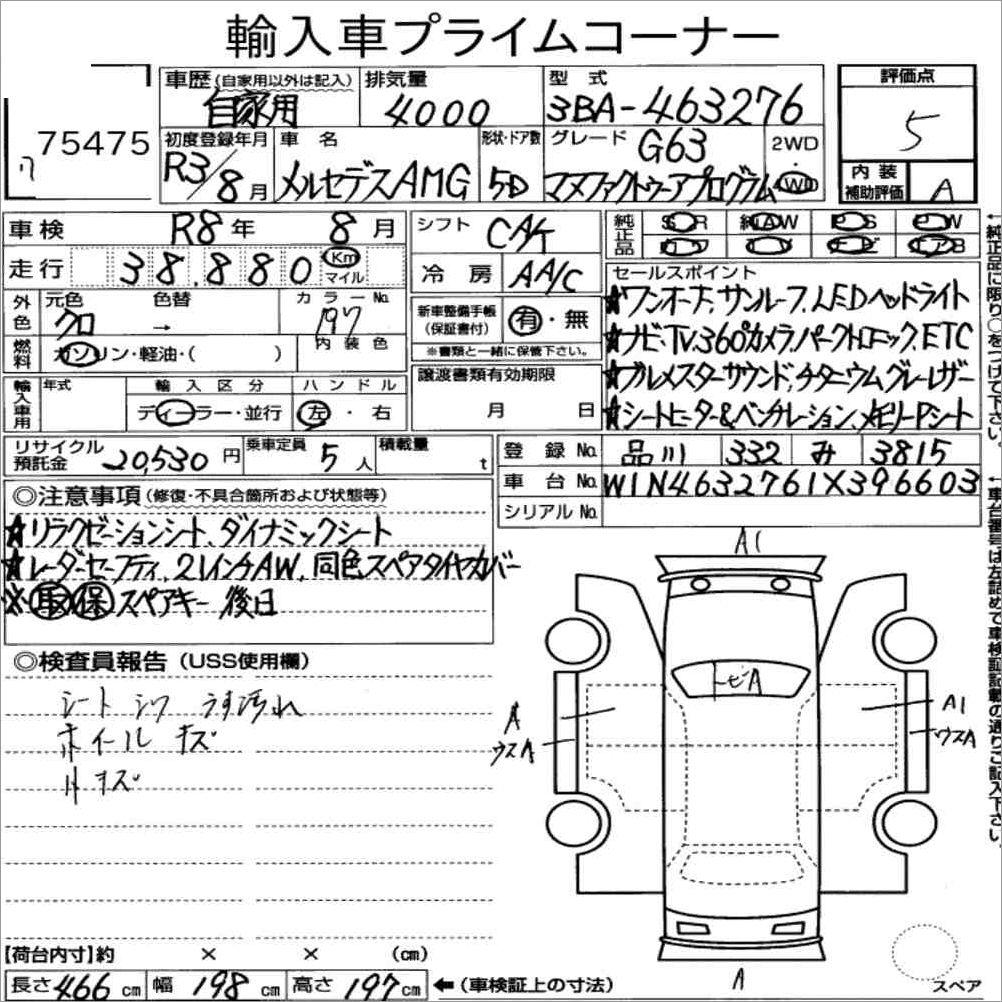 輸入車プライムコーナー
75475
車歴(自家用以外は記入) 自家用
排気量 4000
型式 3BA-463276
評価点 5
初度登録年月 R3/8月
車名 メルセデスAMG
形状・ドア数 5D
グレード G63
マヌファクトゥーアプログラム
2WD・4WD
内装補助評価 A
車検 R8年 8月
走行 38,880 Km マイル
シフト CA/T
冷房 AA/C
純正品 S R 純 AW P S P W
セールスポイント
★ワンオーナ、サンルーフ、LEDヘッドライト
★ナビ、TV、360°カメラ、パークトロニック、ETC
★ブルメスターサウンド、チタニウムグレーレザー
★シートヒーター&ベンチレーション、メモリーPシート
外色 元色 クロ 色替 →
カラーNo. 197
内装色
新車整備手帳(保証書付) 有・無
※書類と一緒に保管下さい。
燃料 ガソリン・軽油・( )
輸入車用 年式
輸入区分 ディーラー・並行
ハンドル 左・右
譲渡書類有効期限 月 日
リサイクル預託金 20,530円
乗車定員 5人
積載量 t
登録No. 品川 332 み 3815
車台No. W1N4632761X396603
シリアルNo.
◎注意事項(修復・不具合箇所および状態等)
★リラクゼーションシート、ダイナミックシート
★レーダーセーフティ、21インチAW、同色スペアタイヤカバー
※取 保 スペアキー 後日
◎検査員報告(USS使用欄)
シート シワ うす汚れ
ホイール キズ
A1
トビA
A
ウスA
A1
ウスA
A
スペア
【荷台内寸】約 × × (cm)
長さ466cm 幅198cm 高さ197cm ←(車検証上の寸法)
←純正品に限り○をつけて下さい。
←車台番号は左詰めで車検証記載の通りご記入下さい。